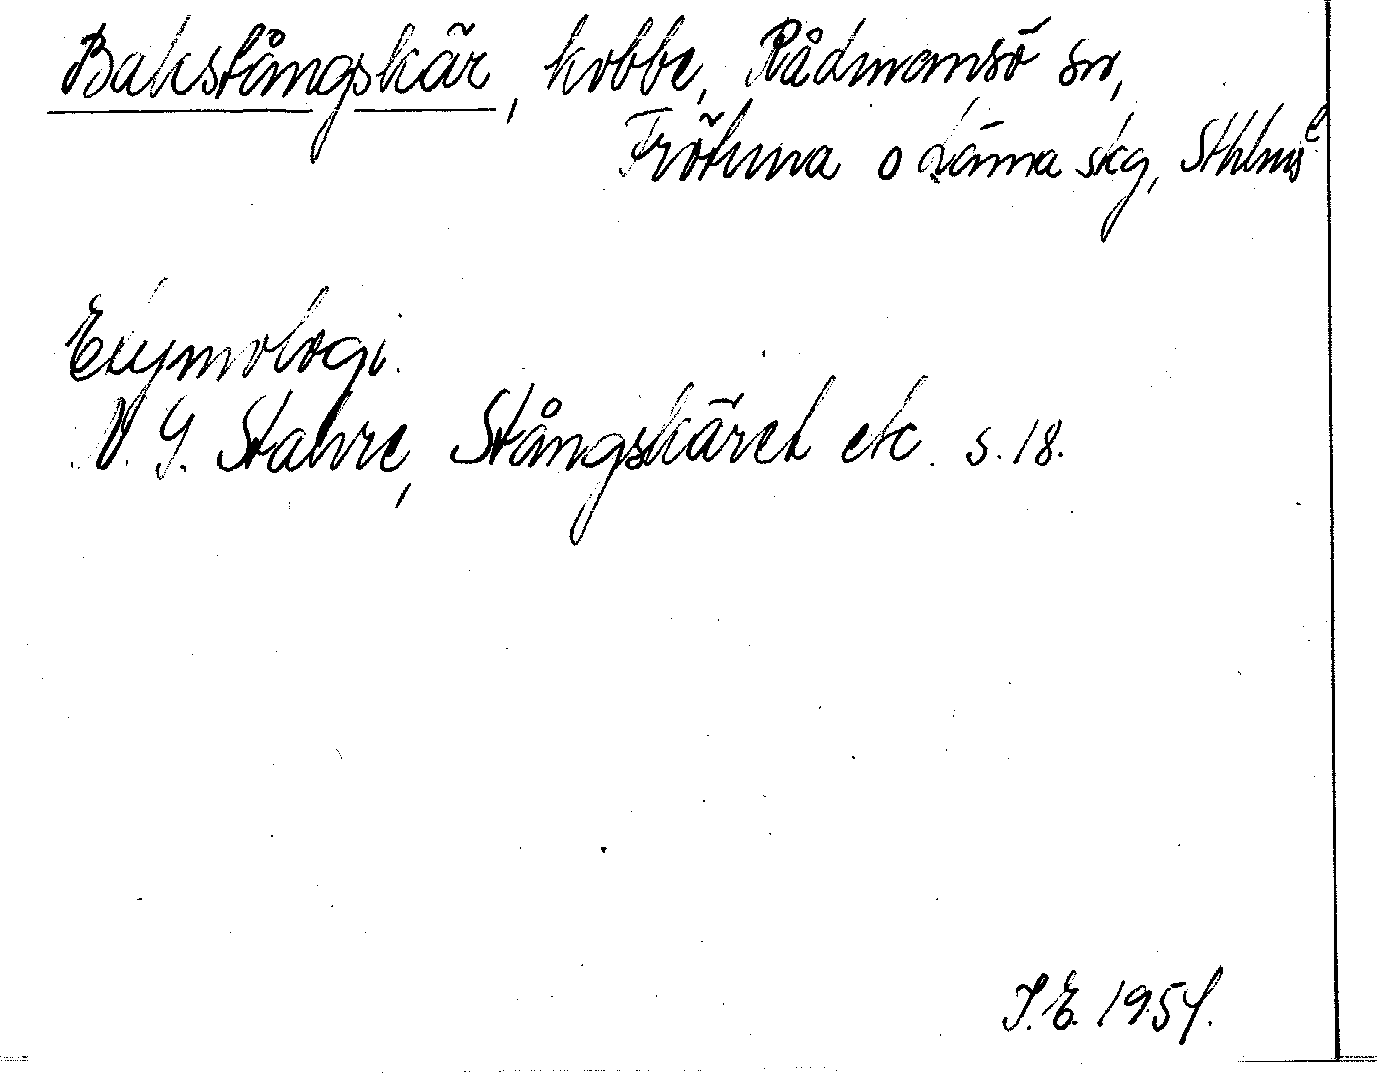 Bakstångskär, kobbe, Rådmansö sn,
Frötuna o Länna skg, Sthlms l
Etymologi.
N. G. Stahre, Stångskäret etc. s. 18.
I. E. 1954.